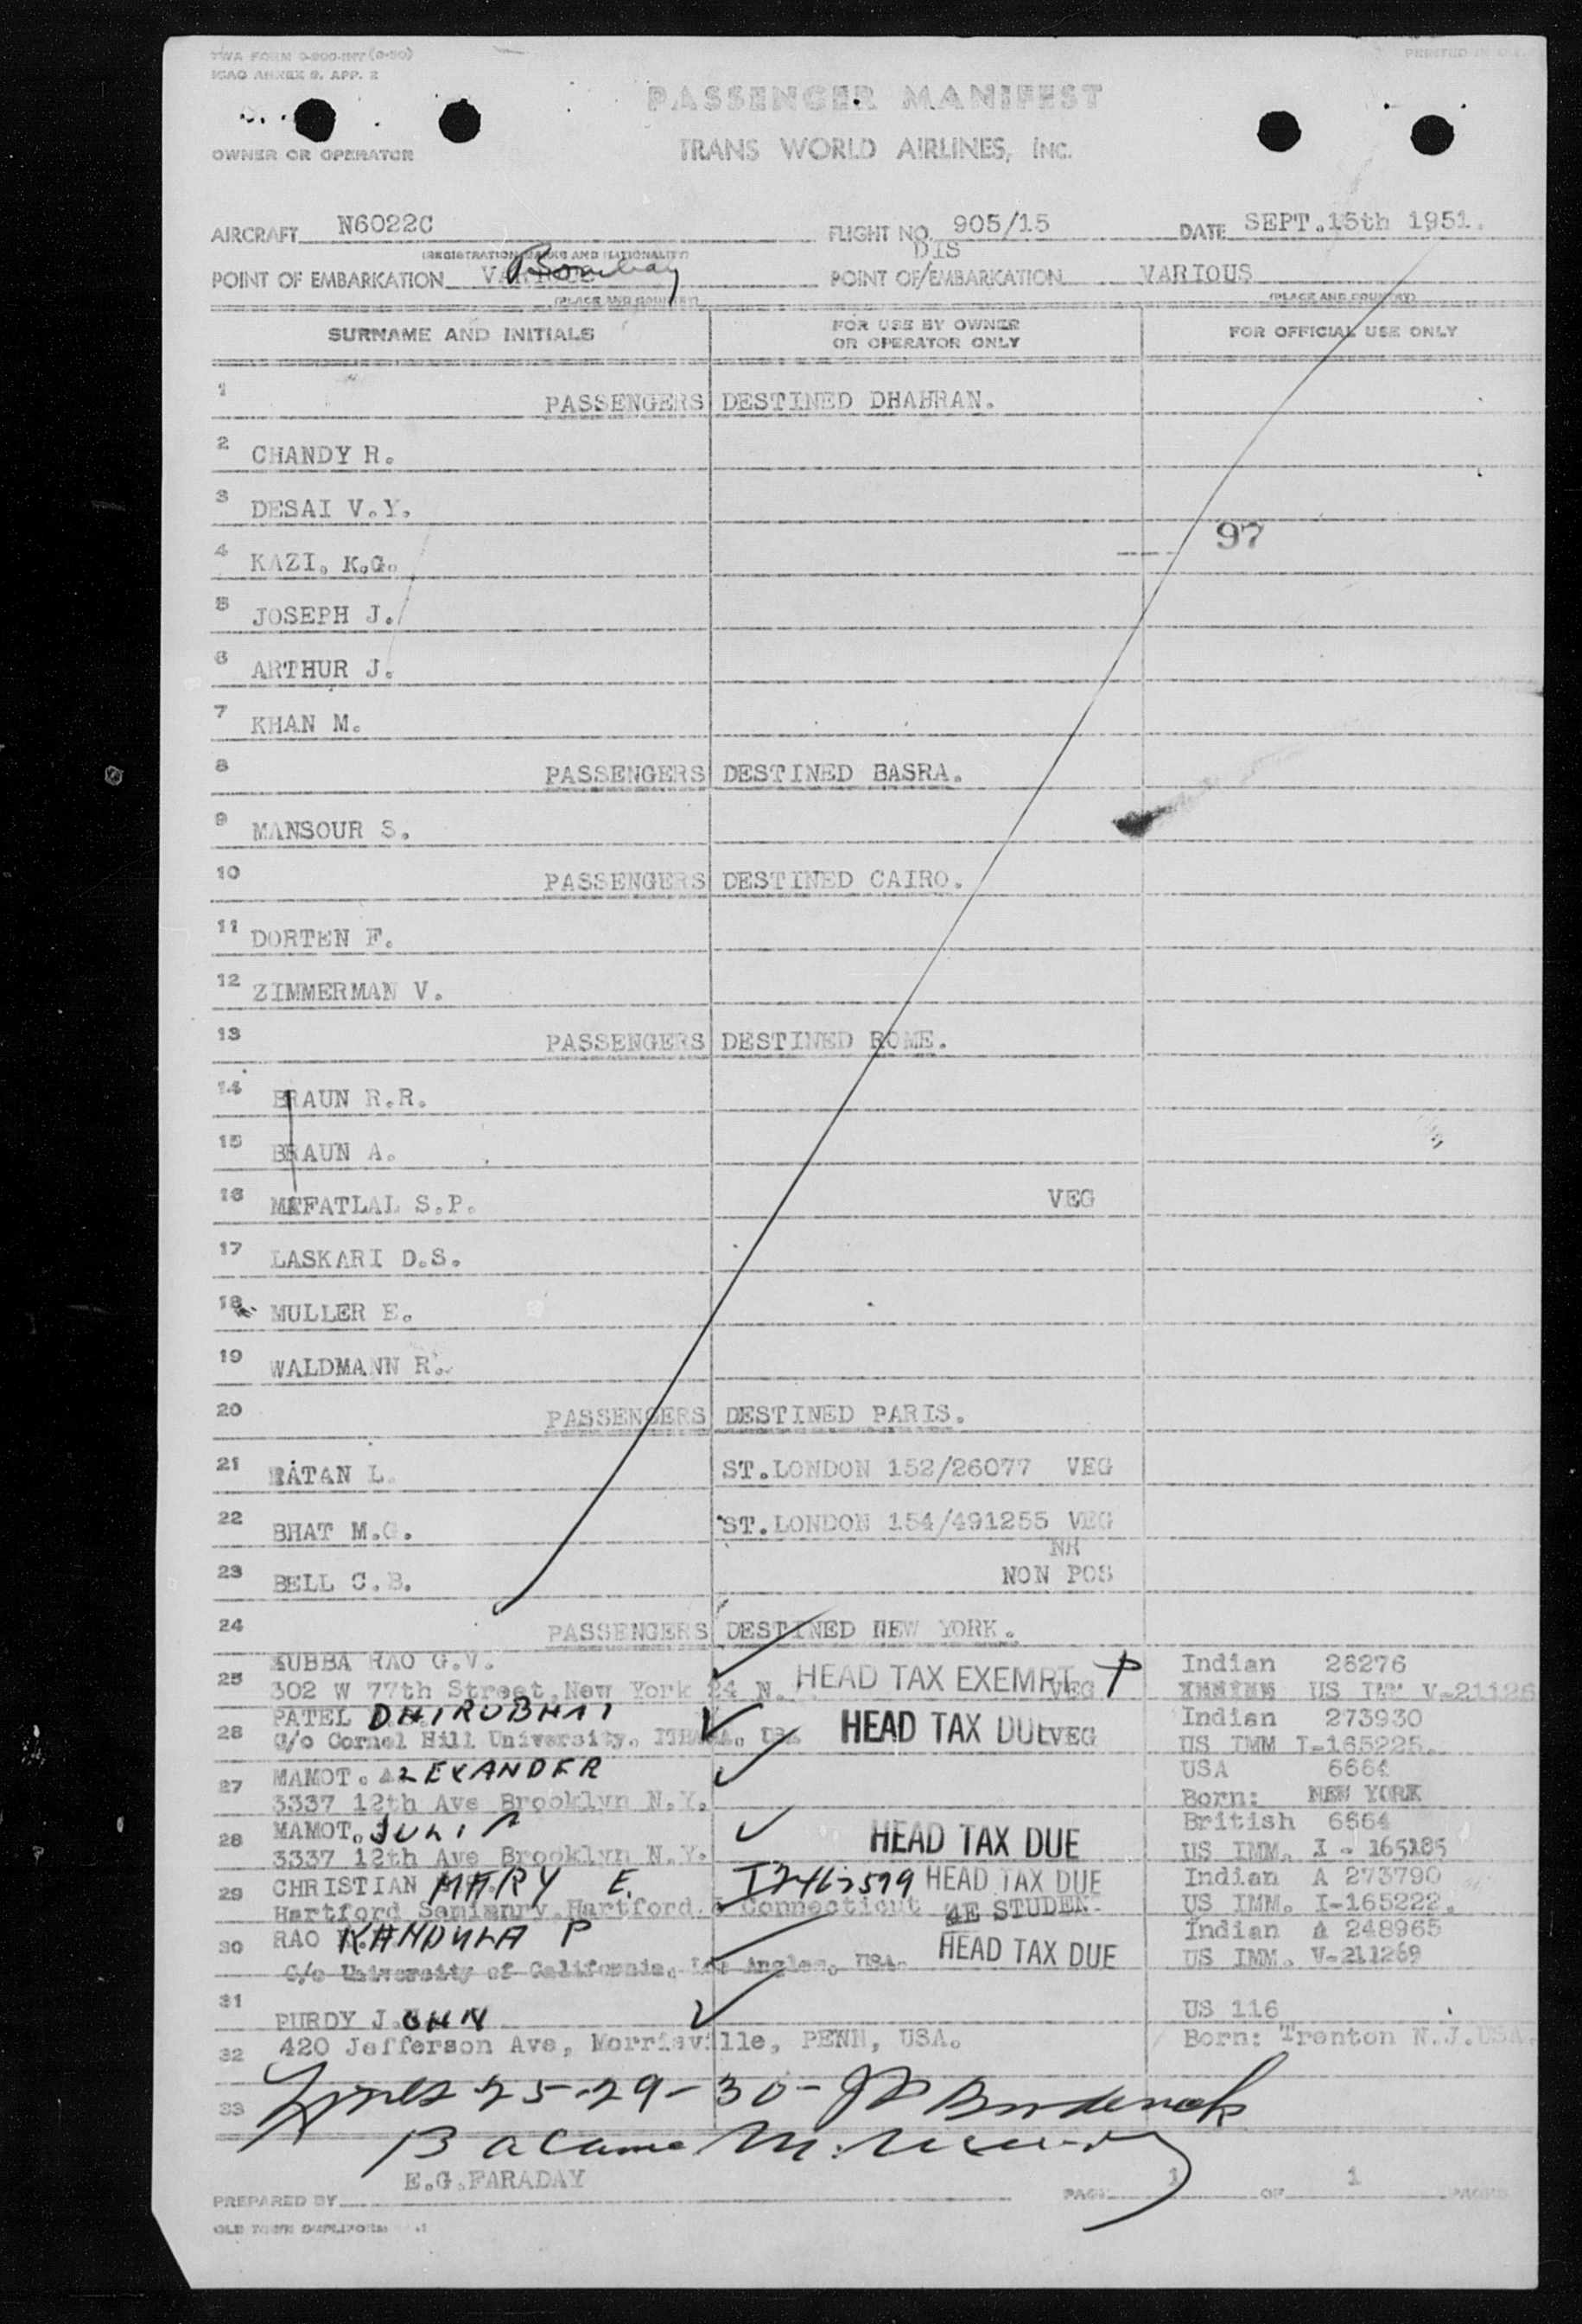 TWA FORM
ICAO ANNEX 9, APP. 2
PRINTED IN
PASSENGER MANIFEST
OWNER OR OPERATOR
TRANS WORLD AIRLINES, INC.
AIRCRAFT N6022C FLIGHT NO. 905/15 DATE SEPT.15th 1951.
(REGISTRATION MARKS AND NATIONALITY) DIS
POINT OF EMBARKATION Bombay POINT OF/EMBARKATION VARIOUS
(PLACE AND COUNTRY) (PLACE AND COUNTRY)
SURNAME AND INITIALS FOR USE BY OWNER OR OPERATOR ONLY FOR OFFICIAL USE ONLY
1 PASSENGERS DESTINED DHAHRAN.
2 CHANDY R.
3 DESAI V.Y.
97
4 KAZI. K.G.
5 JOSEPH J.
6 ARTHUR J.
7 KHAN M.
8 PASSENGERS DESTINED BASRA.
9 MANSOUR S.
10 PASSENGERS DESTINED CAIRO.
11 DORTEN F.
12 ZIMMERMAN V.
13 PASSENGERS DESTINED ROME.
14 BRAUN R.R.
15 BRAUN A.
16 MEFATLAL S.P. VEG
17 LASKARI D.S.
18 MULLER E.
19 WALDMANN R.
20 PASSENGERS DESTINED PARIS.
21 RATAN L. ST.LONDON 152/26077 VEG
22 BHAT M.G. ST.LONDON 154/491255 VEG
NR
23 BELL C.B. NON POS
24 PASSENGERS DESTINED NEW YORK.
25 SUBBA RAO G.V. HEAD TAX EXEMPT P Indian 26276
302 W 77th Street, New York 24 N. VEG US IMM V-21126
26 PATEL DHIRUBHAI HEAD TAX DUE VEG Indian 273930
C/o Cornel Hill University. ITHACA. US IMM I-165225.
27 MAMOT. ALEXANDER USA 6664
3337 12th Ave Brooklyn N.Y. Born: NEW YORK
28 MAMOT. JULIA HEAD TAX DUE British 6664
3337 12th Ave Brooklyn N.Y. US IMM. I - 165185
29 CHRISTIAN MARY E. HEAD TAX DUE Indian A 273790
Hartford Seminary. Hartford. 5 Connecticut 4E STUDEN US IMM. I-165222.
30 RAO KANDULA P HEAD TAX DUE Indian A 248965
C/o University of California. Los Angles. USA. US IMM. V-211269
31 PURDY J.OHN US 116
32 420 Jefferson Ave, Morrisville, PENN, USA. Born: Trenton N.J.USA.
33 Lines 25-29-30-
Balance
E.G.FARADAY
PREPARED BY PAGE 1 OF 1 PAGES